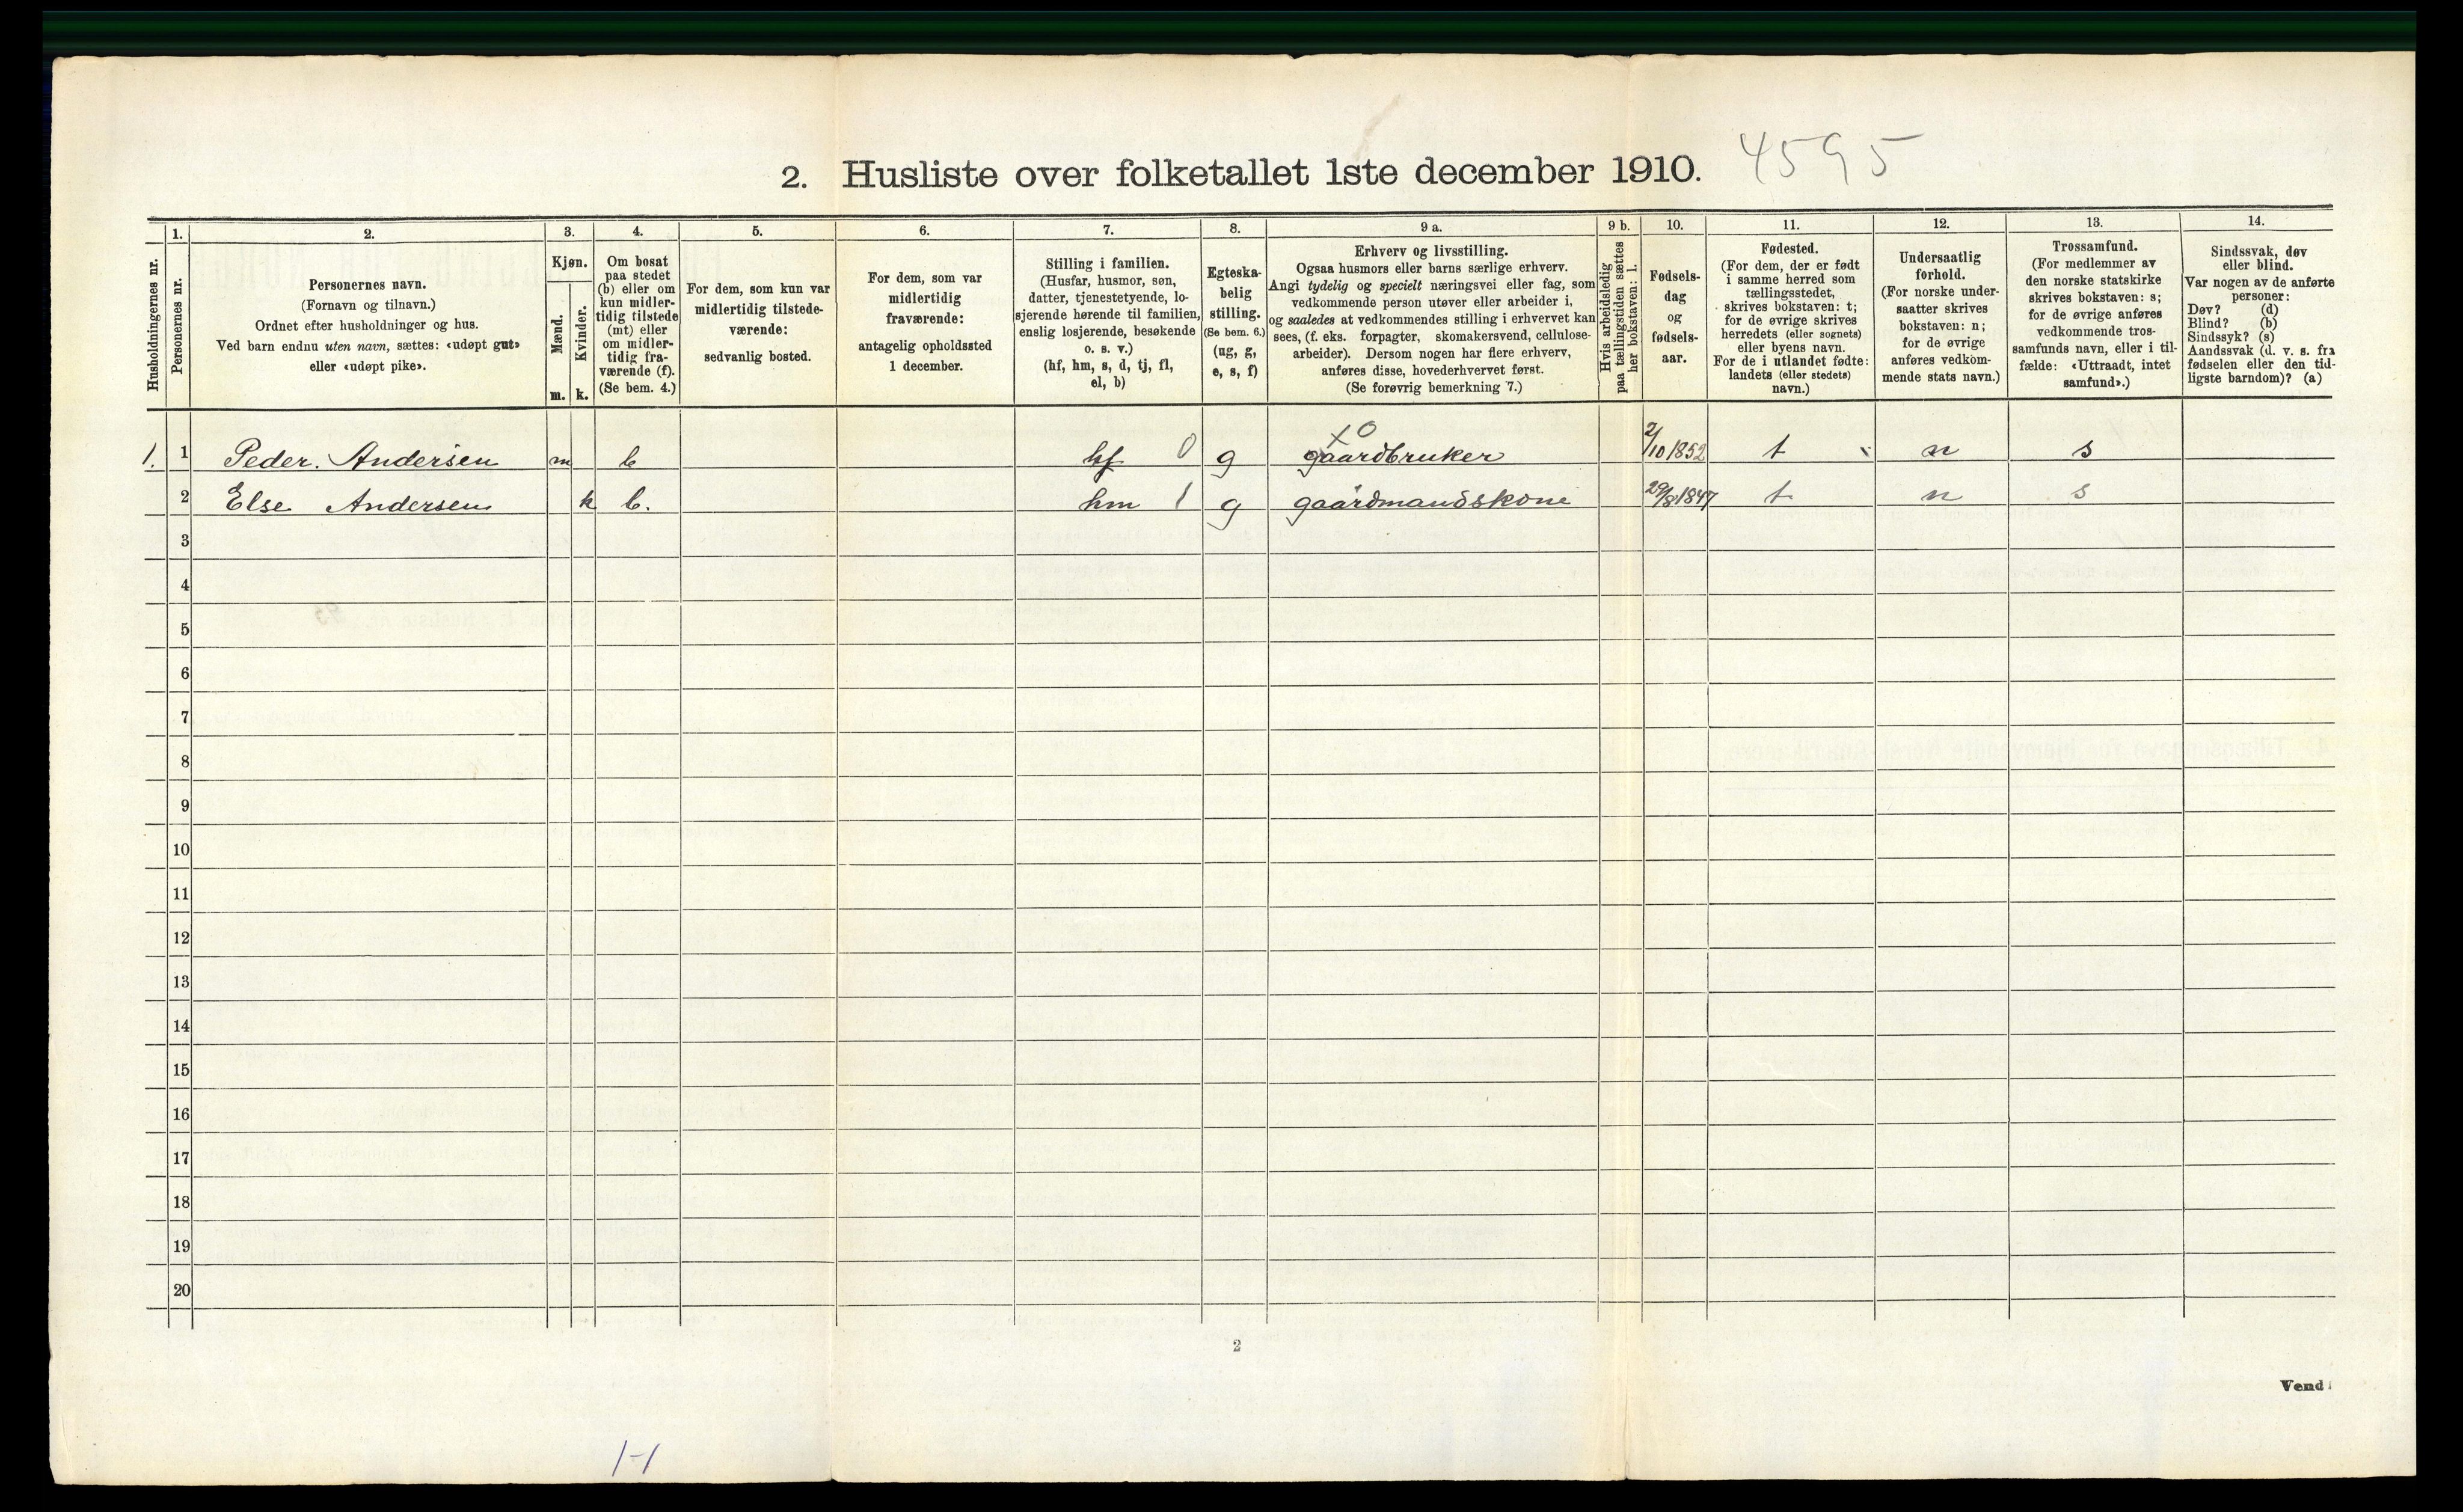 2. Husliste over folketallet 1ste december 1910. 4595
Husholdningernes nr.
1. Personernes nr.
2. Personernes navn.
(Fornavn og tilnavn.)
Ordnet efter husholdninger og hus.
Ved barn endnu uten navn, sættes: «udøpt gut»
eller «udøpt pike».
3. Kjøn.
Mænd. m.
Kvinder. k.
4. Om bosat
paa stedet
(b) eller om
kun midler-
tidig tilstede
(mt) eller
om midler-
tidig fra-
værende (f).
(Se bem. 4.)
5. For dem, som kun var
midlertidig tilstede-
værende:
sedvanlig bosted.
6. For dem, som var
midlertidig
fraværende:
antagelig opholdssted
1 december.
7. Stilling i familien.
(Husfar, husmor, søn,
datter, tjenestetyende, lo-
sjerende hørende til familien,
enslig losjerende, besøkende
o. s. v.)
(hf, hm, s, d, tj, fl,
el, b)
8. Egteska-
belig
stilling.
(Se bem. 6.)
(ug, g,
e, s, f)
9 a. Erhverv og livsstilling.
Ogsaa husmors eller barns særlige erhverv.
Angi tydelig og specielt næringsvei eller fag, som
vedkommende person utøver eller arbeider i,
og saaledes at vedkommendes stilling i erhvervet kan
sees, (f. eks. forpagter, skomakersvend, cellulose-
arbeider). Dersom nogen har flere erhverv,
anføres disse, hovederhvervet først.
(Se forøvrig bemerkning 7.)
9 b. Hvis arbeidsledig
paa tællingstiden sættes
her bokstaven: l.
10. Fødsels-
dag
og
fødsels-
aar.
11. Fødested.
(For dem, der er født
i samme herred som
tællingsstedet,
skrives bokstaven: t;
for de øvrige skrives
herredets (eller sognets)
eller byens navn.
For de i utlandet fødte:
landets (eller stedets)
navn.)
12. Undersaatlig
forhold.
(For norske under-
saatter skrives
bokstaven: n;
for de øvrige
anføres vedkom-
mende stats navn.)
13. Trossamfund.
(For medlemmer av
den norske statskirke
skrives bokstaven: s;
for de øvrige anføres
vedkommende tros-
samfunds navn, eller i til-
fælde: «Uttraadt, intet
samfund».)
14. Sindssvak, døv
eller blind.
Var nogen av de anførte
personer:
Døv? (d)
Blind? (b)
Sindssyk? (s)
Aandssvak (d. v. s. fra
fødselen eller den tid-
ligste barndom)? (a)
x 0
1. 1 Peder. Andersen m b hf 0 g gaardbruker 2/10 1852 t n s
2 Else Andersen k b. hm 1 g gaardmandskone 29/8 1847 t n s
3
4
5
6
7
8
9
10
11
12
13
14
15
16
17
18
19
20
2
Vend!
1-1